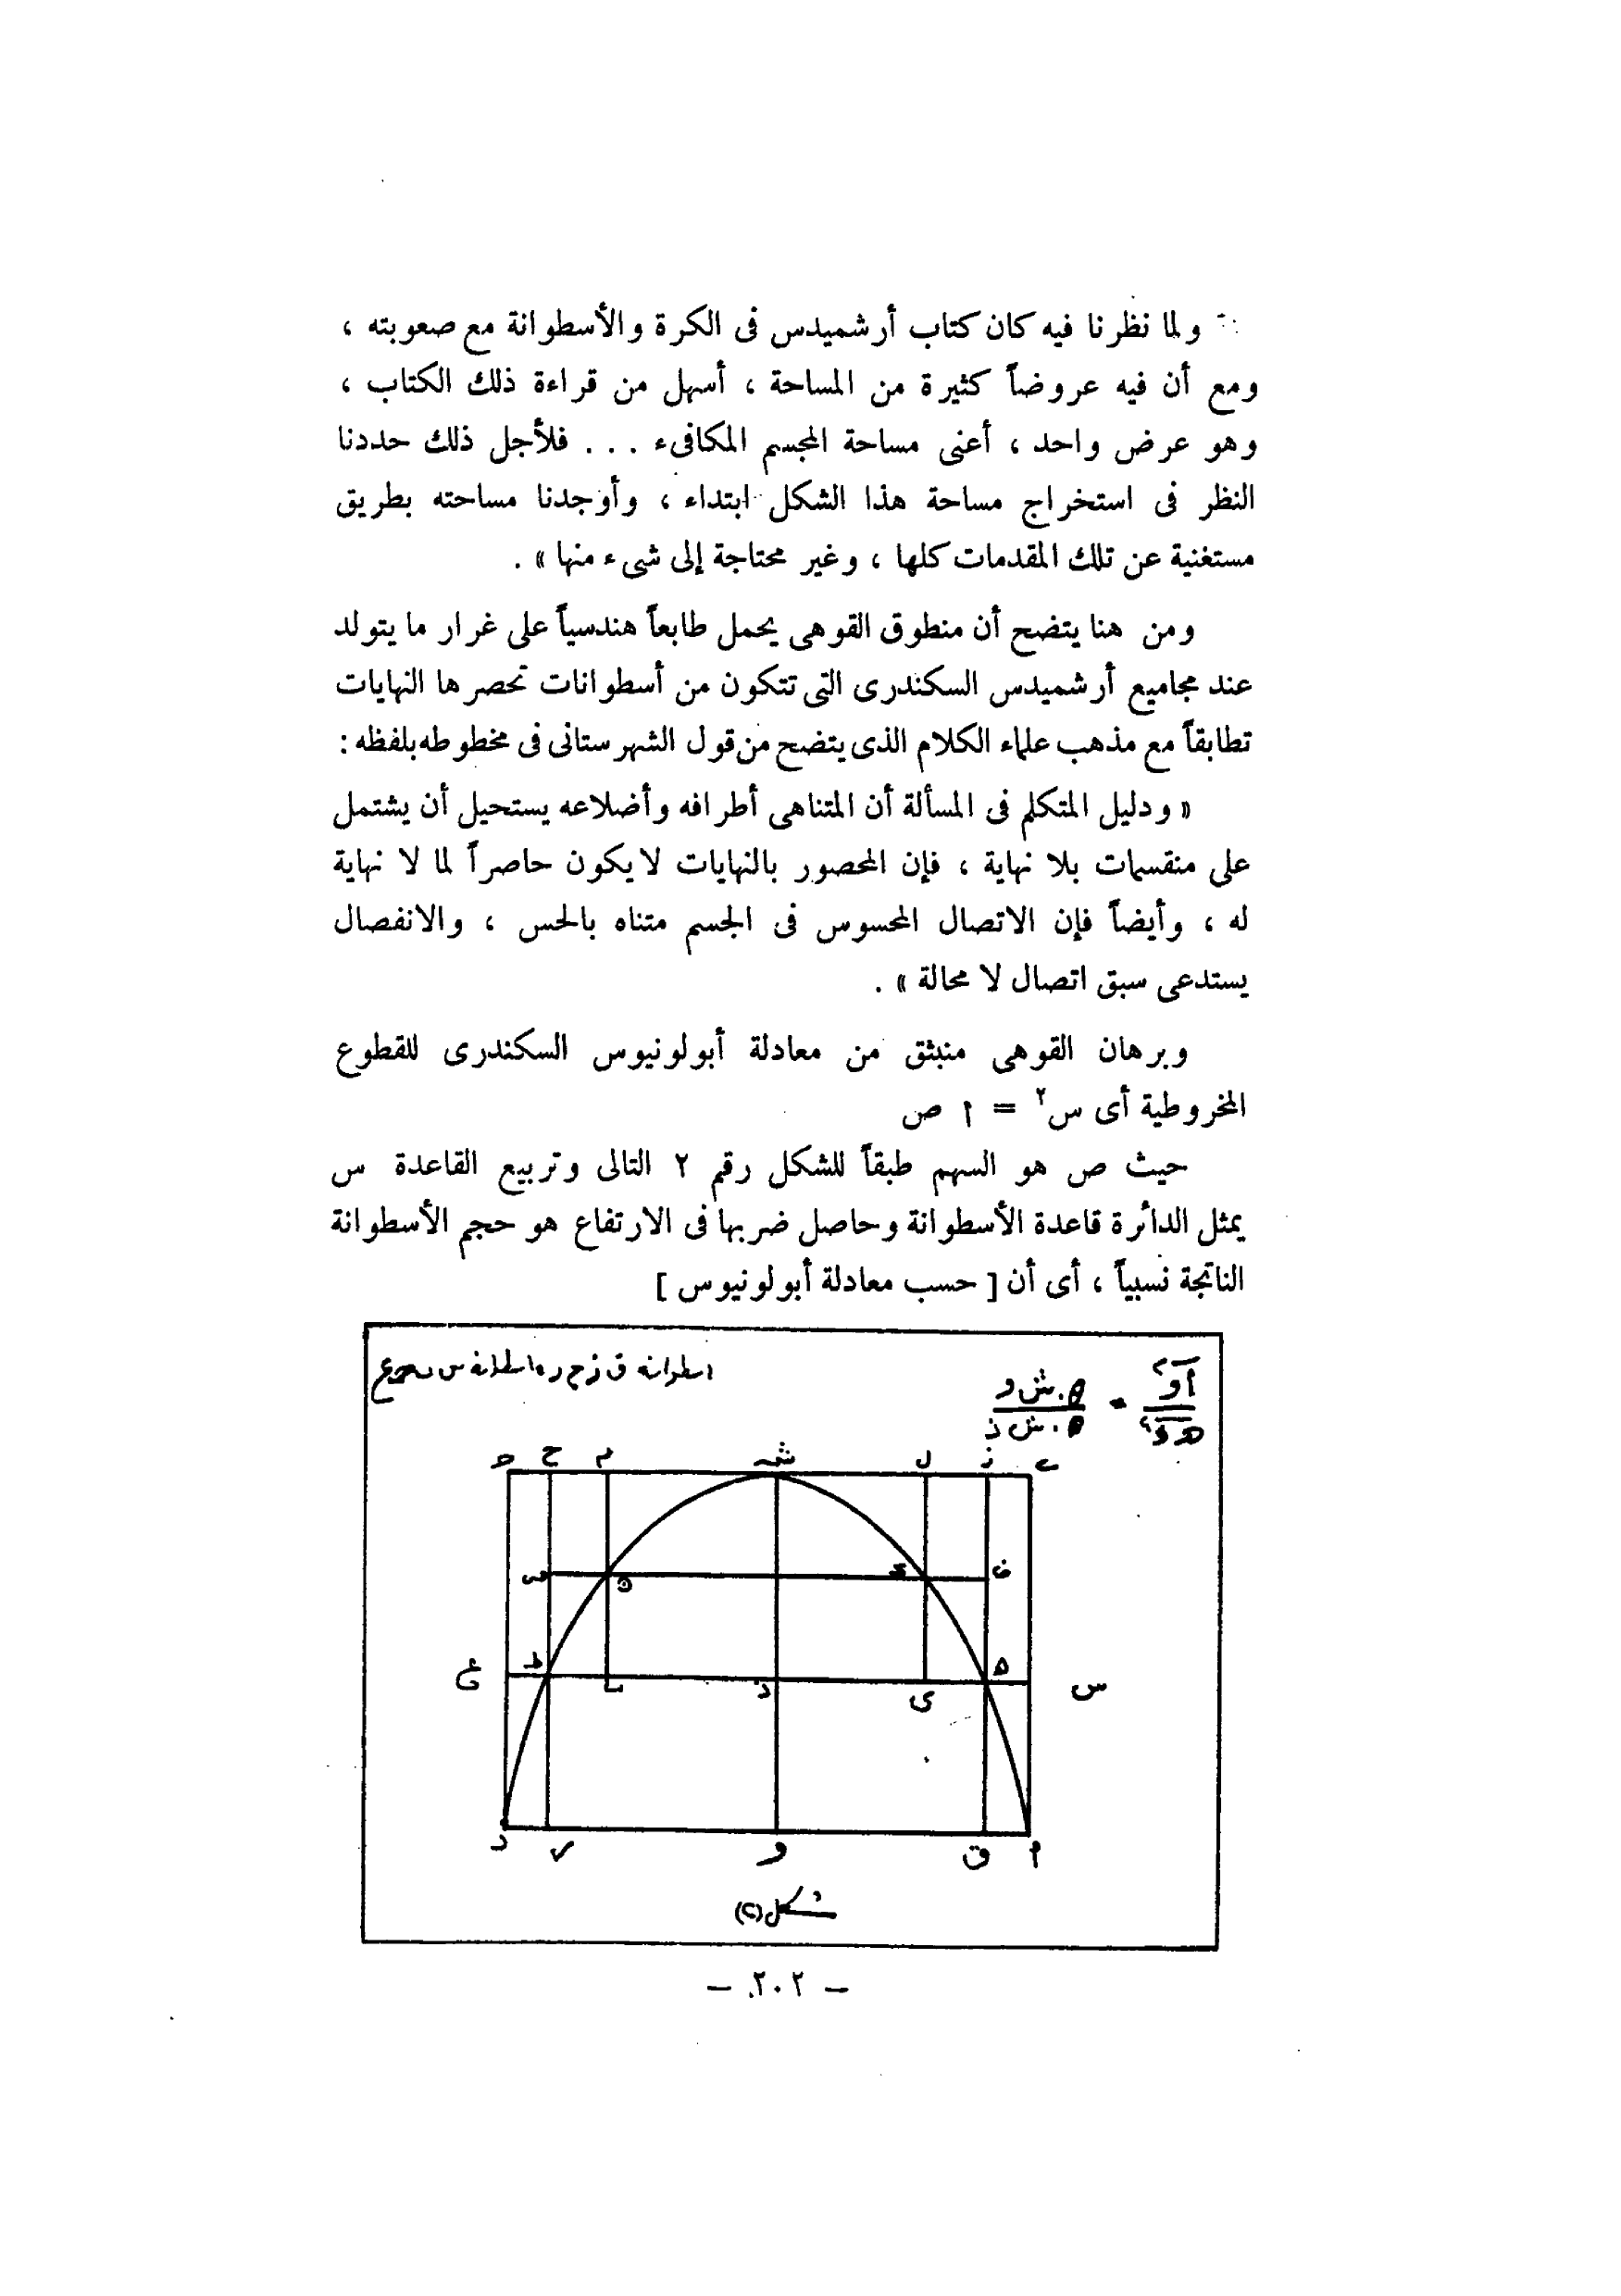 ولما نظرنا فيه كان كتاب أرشميدس فى الكرة والأسطوانة مع صعوبته ،
ومع أن فيه عروضاً كثيرة من المساحة ، أسهل من قراءة ذلك الكتاب ،
وهو عرض واحد ، أعنى مساحة المجسم المكافىء . . . فلأجل ذلك حددنا
النظر فى استخراج مساحة هذا الشكل ابتداء ، وأوجدنا مساحته بطريق
مستغنية عن تلك المقدمات كلها ، وغير محتاجة إلى شىء منها » .
ومن هنا يتضح أن منطوق القوهى يحمل طابعاً هندسياً على غرار ما يتولد
عند مجاميع أرشميدس السكندرى التى تتكون من أسطوانات تحصرها النهايات
تطابقاً مع مذهب علماء الكلام الذى يتضح من قول الشهرستانى فى مخطوطه بلفظه :
« ودليل المتكلم فى المسألة أن المتناهى أطرافه وأضلاعه يستحيل أن يشتمل
على منقسمات بلا نهاية ، فإن المحصور بالنهايات لا يكون حاصراً لما لا نهاية
له ، وأيضاً فإن الاتصال المحسوس فى الجسم متناه بالحس ، والانفصال
يستدعى سبق اتصال لا محالة » .
وبرهان القوهى منبثق من معادلة أبولونيوس السكندرى للقطوع
المخروطية أى س٢ = ا ص
حيث ص هو السهم طبقاً للشكل رقم ٢ التالى وتربيع القاعدة س
يمثل الدائرة قاعدة الأسطوانة وحاصل ضربها فى الارتفاع هو حجم الأسطوانة
الناتجة نسبياً ، أى أن [ حسب معادلة أبولونيوس ]
اسطوانة ق ز ح ر
ح م ش ل ز
ض
ط ه
غ ى س
و ق ا
شكل (٢)
— ٢٠٢ —